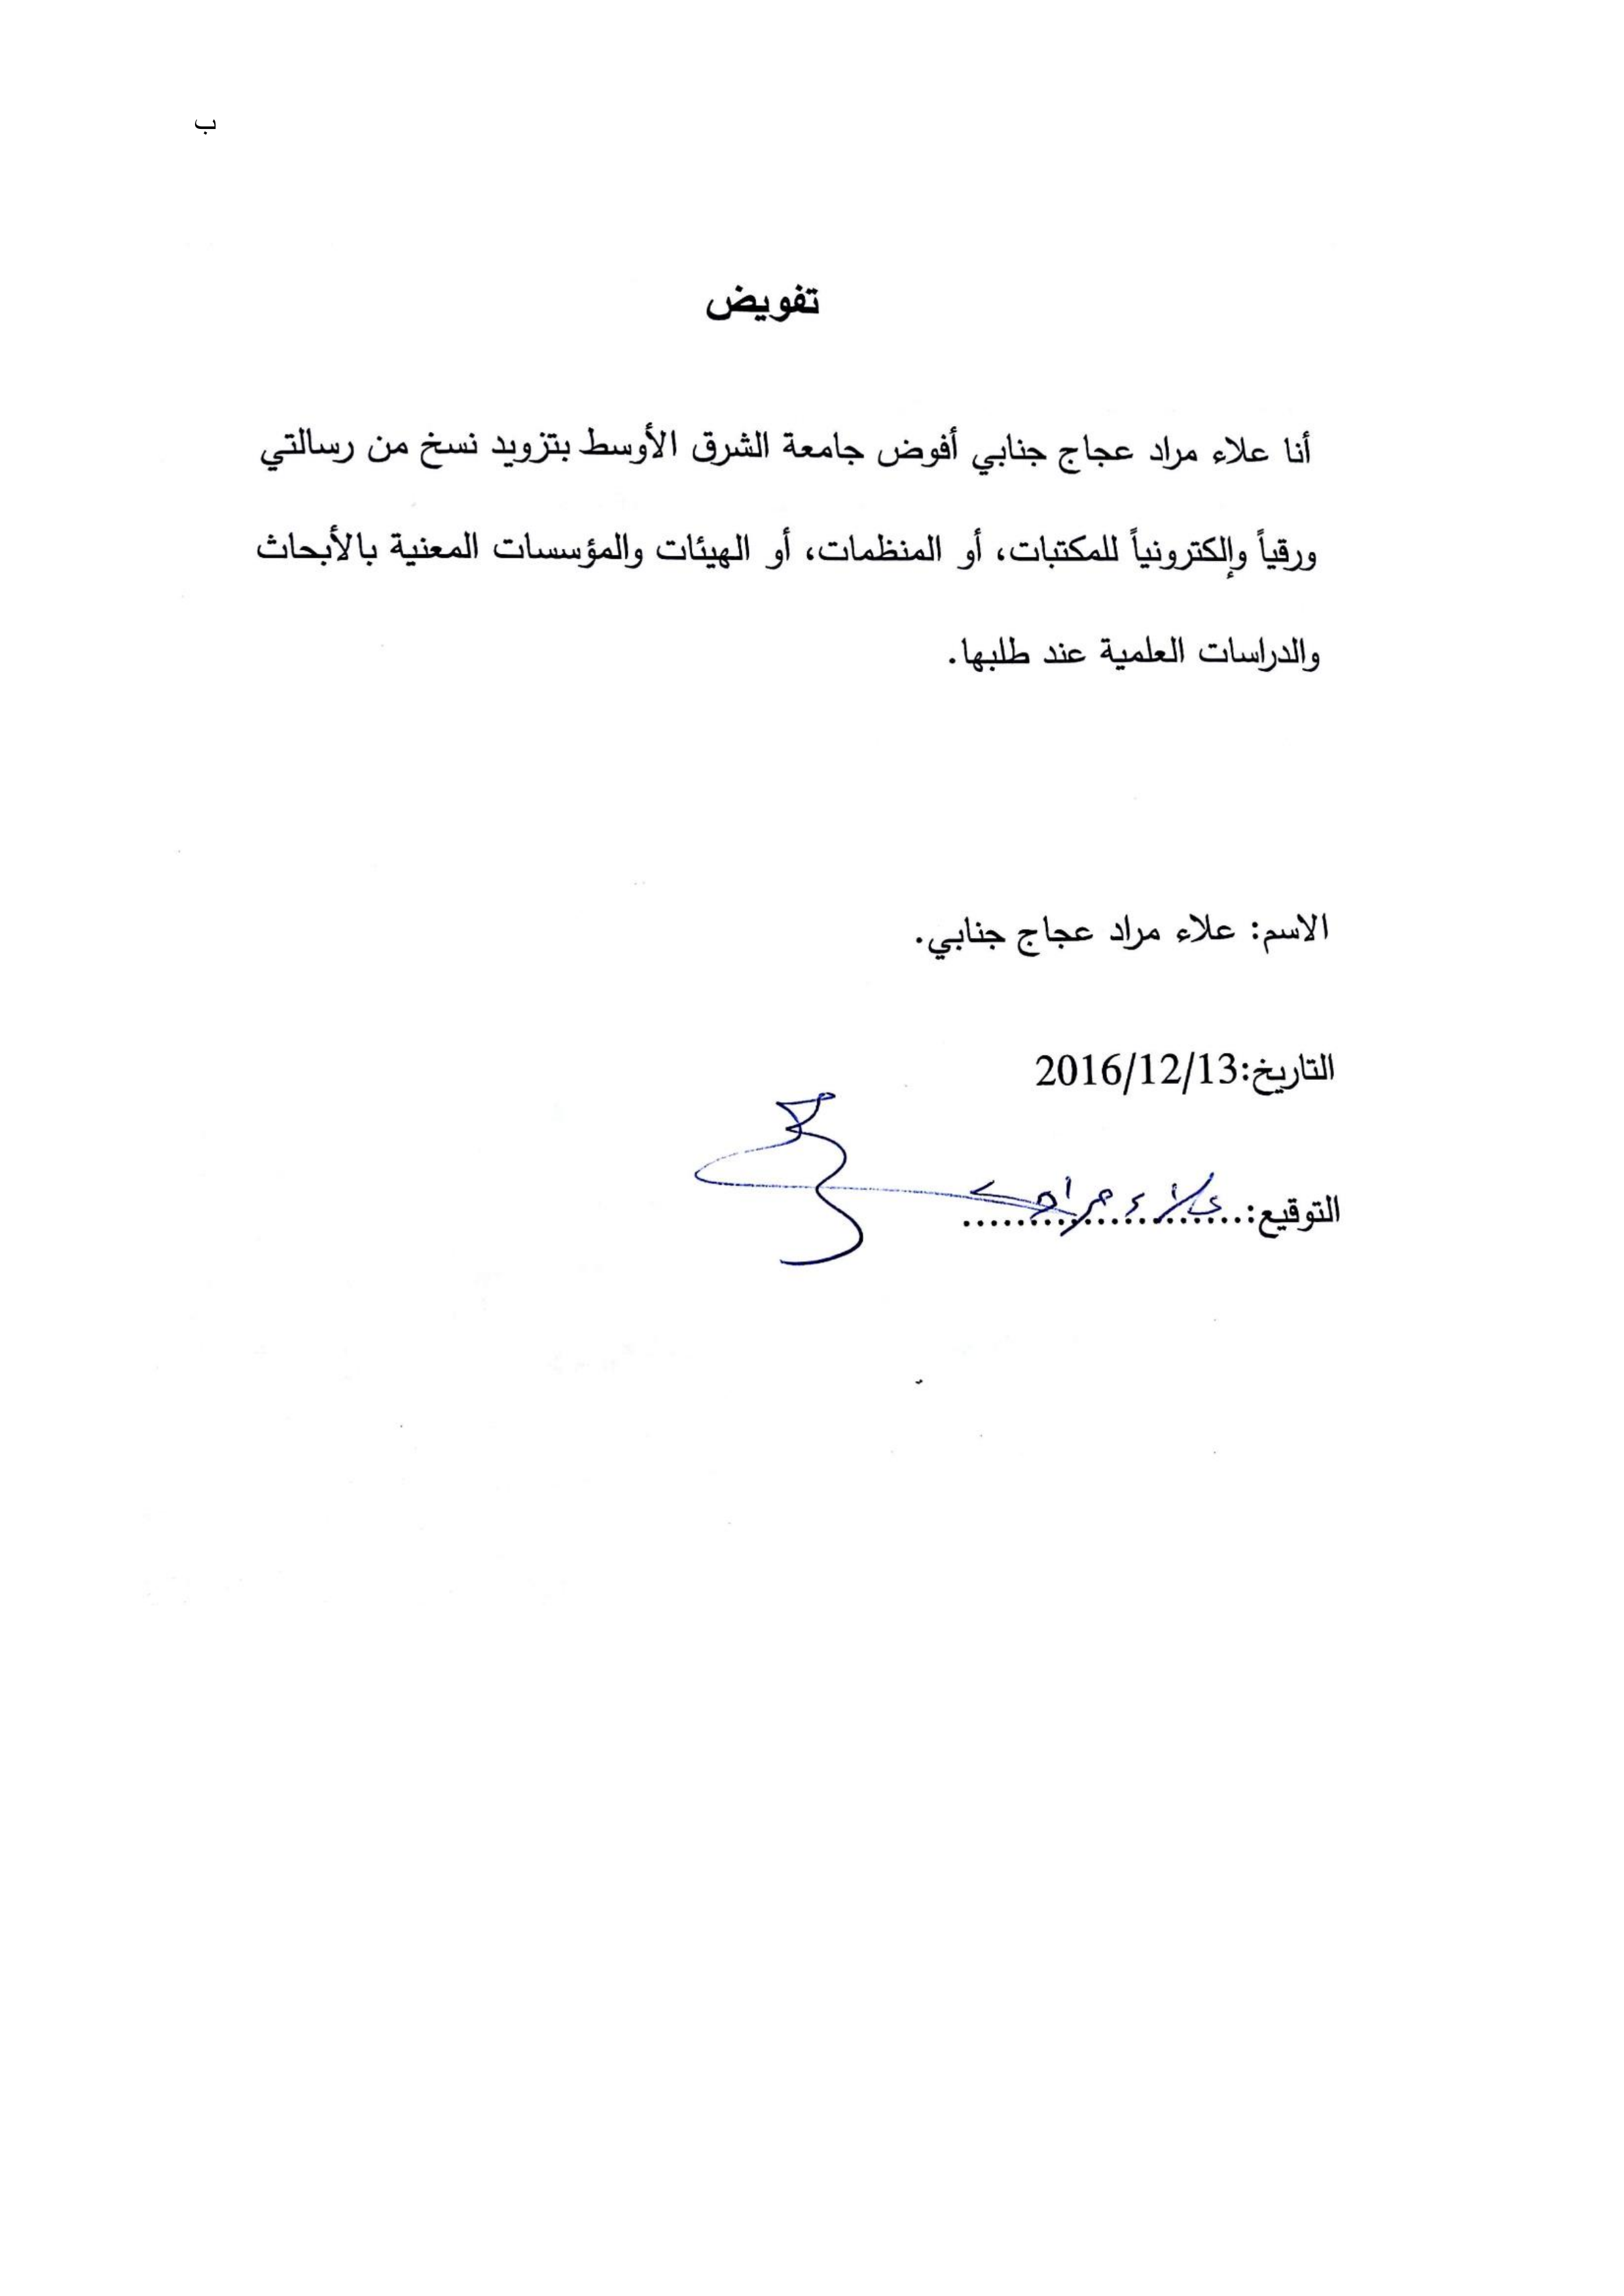 ب
تفويض
أنا علاء مراد عجاج جنابي أفوض جامعة الشرق الأوسط بتزويد نسخ من رسالتي
ورقياً وإلكترونياً للمكتبات، أو المنظمات، أو الهيئات والمؤسسات المعنية بالأبحاث
والدراسات العلمية عند طلبها.
الاسم: علاء مراد عجاج جنابي.
التاريخ:2016/12/13
التوقيع:...................... علاء مراد